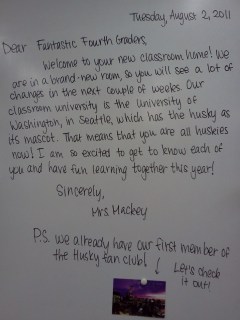 Tuesday, August 2, 2011
Dear Fantastic Fourth Graders,
Welcome to your new classroom home! We
are in a brand-new room, so you will see a lot of
changes in the next couple of weeks. Our
classroom university is the University of
Washington, in Seattle, which has the husky as
its mascot. That means that you are all huskies
now! I am so excited to get to know each of
you and have fun learning together this year!
Sincerely,
Mrs. Mackey
P.S. We already have our first member of
the Husky fan club!
Let's check
it out!